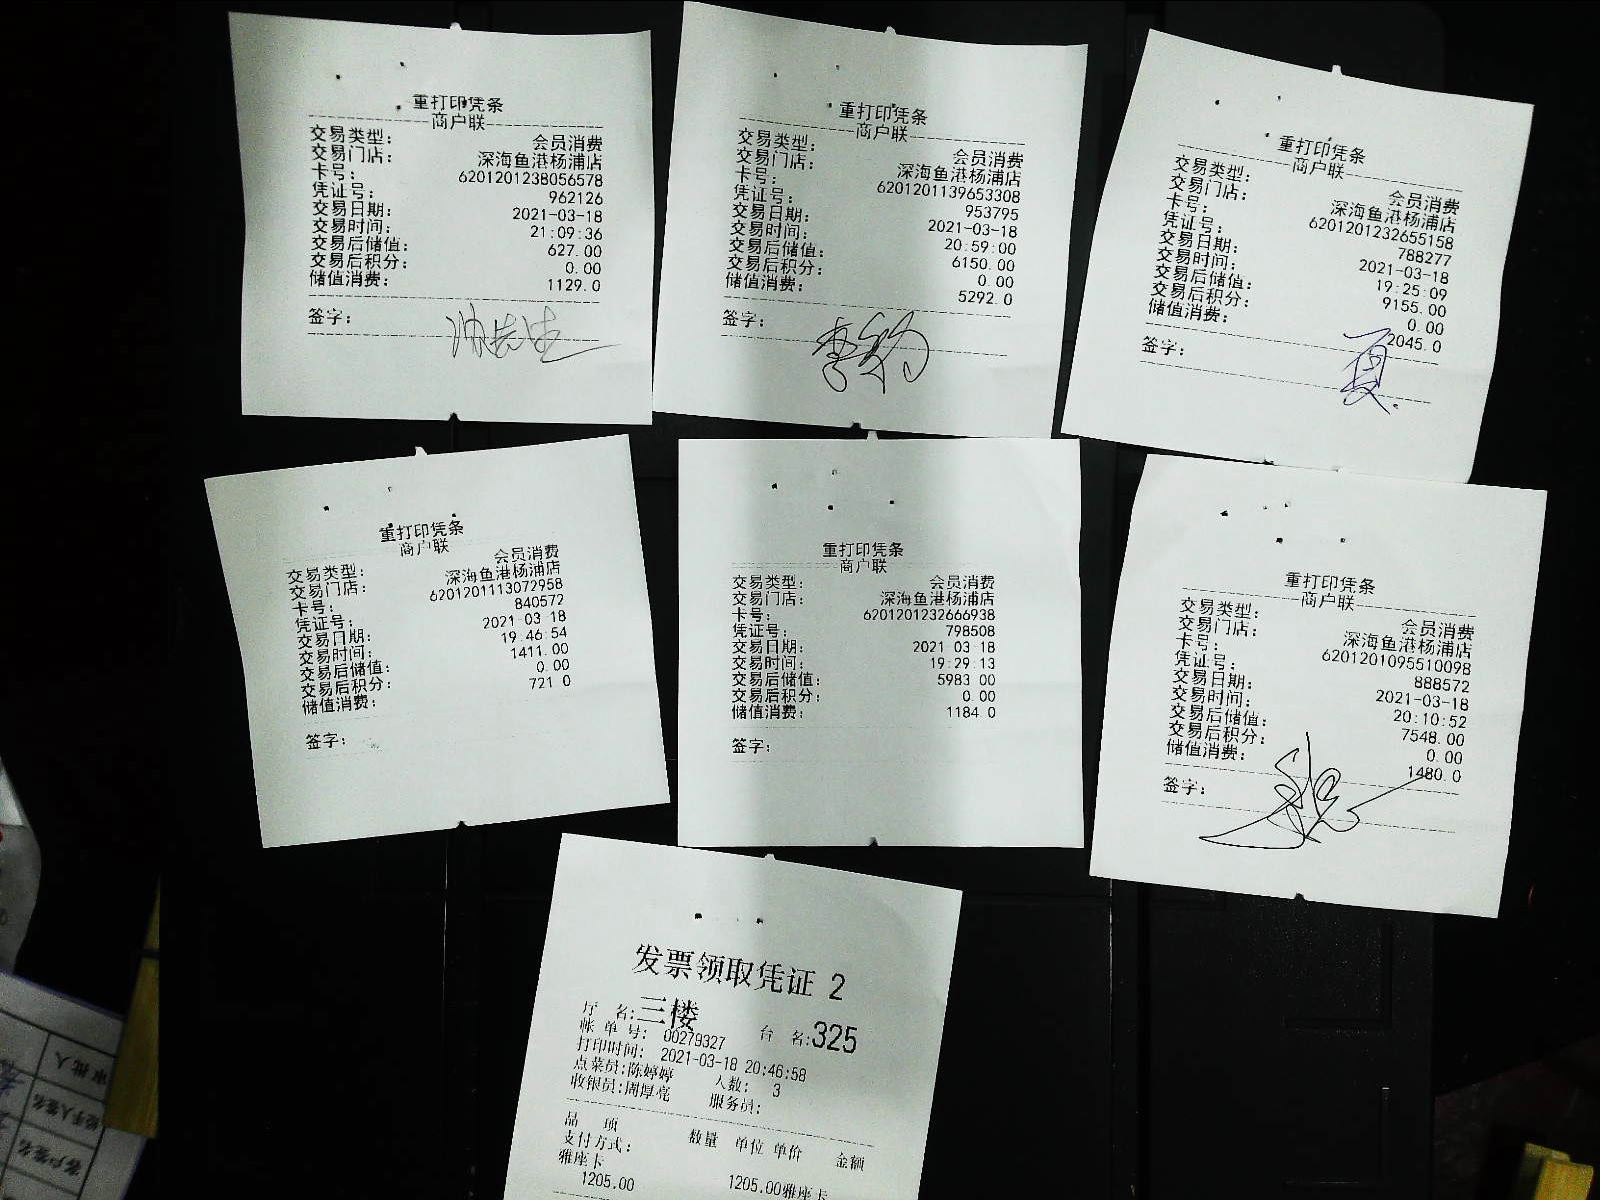 重打印凭条
商户联
交易类型： 会员消费
交易门店： 深海鱼港杨浦店
卡号： 6201201238056578
凭证号： 962126
交易日期： 2021-03-18
交易时间： 21:09:36
交易后储值： 627.00
交易后积分： 0.00
储值消费： 1129.0
签字：
重打印凭条
商户联
交易类型： 会员消费
交易门店： 深海鱼港杨浦店
卡号： 6201201139653308
凭证号： 953795
交易日期： 2021-03-18
交易时间： 20:59:00
交易后储值： 6150.00
交易后积分： 0.00
储值消费： 5292.0
签字：
重打印凭条
商户联
交易类型： 会员消费
交易门店： 深海鱼港杨浦店
卡号： 6201201232655158
凭证号： 788277
交易日期： 2021-03-18
交易时间： 19:25:09
交易后储值： 9155.00
交易后积分： 0.00
储值消费： 2045.0
签字： 夏
重打印凭条
商户联
交易类型： 会员消费
交易门店： 深海鱼港杨浦店
卡号： 6201201113072958
凭证号： 840572
交易日期： 2021-03-18
交易时间： 19:46:54
交易后储值： 1411.00
交易后积分： 0.00
储值消费： 721.0
签字：
重打印凭条
商户联
交易类型： 会员消费
交易门店： 深海鱼港杨浦店
卡号： 6201201232666938
凭证号： 798508
交易日期： 2021-03-18
交易时间： 19:29:13
交易后储值： 5983.00
交易后积分： 0.00
储值消费： 1184.0
签字：
重打印凭条
商户联
交易类型： 会员消费
交易门店： 深海鱼港杨浦店
卡号： 6201201095510098
凭证号： 888572
交易日期： 2021-03-18
交易时间： 20:10:52
交易后储值： 7548.00
交易后积分： 0.00
储值消费： 1480.0
签字：
发票领取凭证 2
厅 名：三楼 台 名：325
帐 单 号： 00279327
打印时间： 2021-03-18 20:46:58
点菜员：陈婷婷 人数： 3
收银员：周厚亮 服务员：
品 项 数量 单位 单价 金额
支付方式：
雅座卡
1205.00 1205.00雅座卡
审批人
客户签名